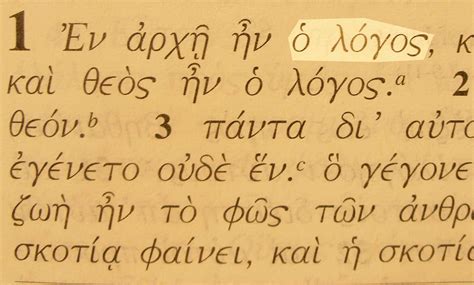 1 Ἐν ἀρχῇ ἦν ὁ λόγος, κ
καὶ θεὸς ἦν ὁ λόγος.ᵃ 2
θεόν.ᵇ 3 πάντα δι’ αὐτο
ἐγένετο οὐδὲ ἕν.ᶜ ὃ γέγονε
ζωὴ ἦν τὸ φῶς τῶν ἀνθρ
σκοτίᾳ φαίνει, καὶ ἡ σκοτία